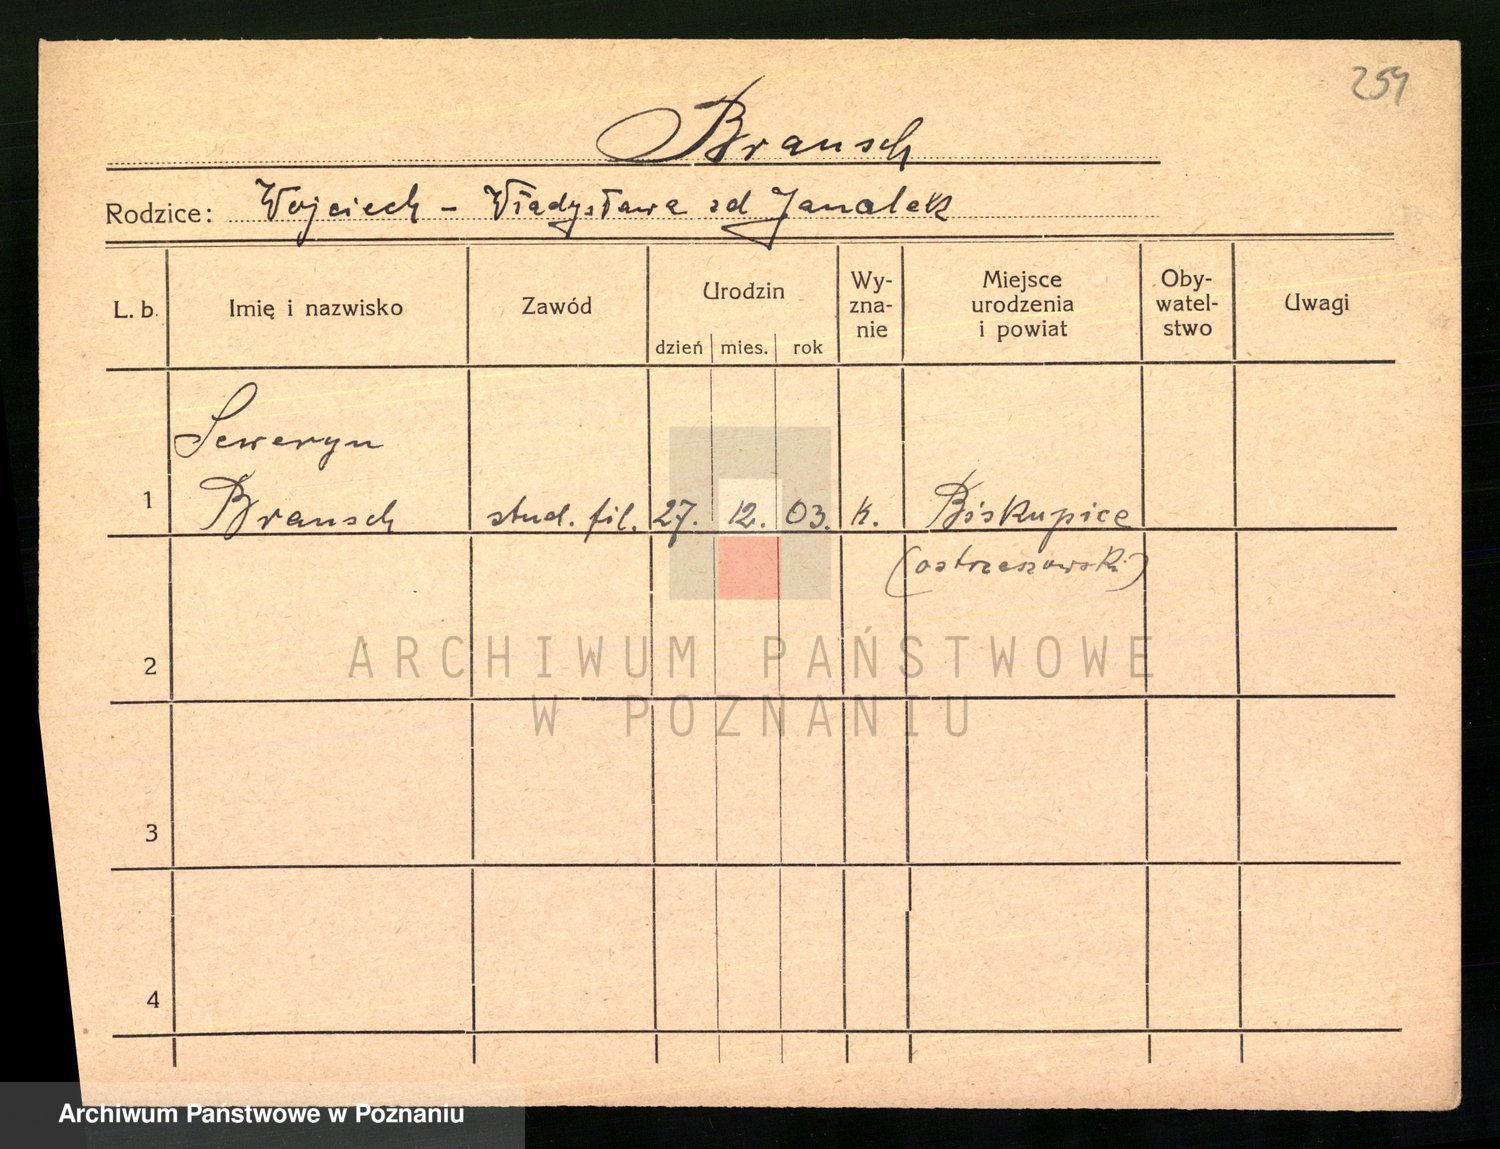 254
Bransch
Rodzice: Wojciech – Władysława zd Janalek
L. b. Imię i nazwisko Zawód Urodzin Wy- Miejsce Oby- Uwagi
zna- urodzenia watel-
nie i powiat stwo
dzień mies. rok
Seweryn
1 Bransch stud. fil. 27. 12. 03. k. Biskupice
(ostrzeszowski)
2
ARCHIWUM PAŃSTWOWE
W POZNANIU
3
4
Archiwum Państwowe w Poznaniu